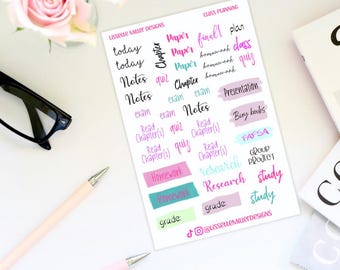 LISSELLE MILLER DESIGNS
CLASS PLANNING
today
today
Chapter
Paper
Paper
Paper
final!
plan
homework
homework
homework
class
quiz
Notes
Notes
quiz
Chapter
exam
exam
Presentation
exam
quiz
Notes
Buy books
Read
Chapter(s)
Read
Chapter(s)
quiz
Read
Chapter(s)
FAFSA
GROUP
PROJECT
Homework
research
Homework
Research
study
grade
grade
study
@LISSELLEMILLERDESIGNS